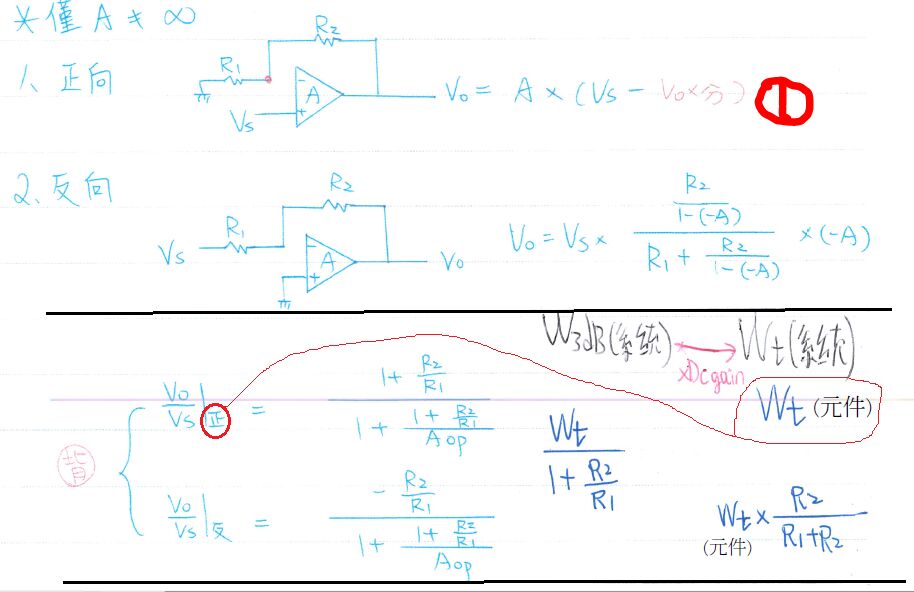 *僅 A ≠ ∞
1、正向
R1
R2
A
-
+
Vs
Vo = A × (Vs - Vo×分)
1
2、反向
R2
R1
Vs
A
-
+
Vo
Vo = Vs × (R2/(1-(-A))) / (R1 + R2/(1-(-A))) × (-A)
W3dB(系統) → Wt(系統)
×Dc gain
Wt (元件)
背
Vo/Vs|正 = (1 + R2/R1) / (1 + (1 + R2/R1)/Aop)
Wt / (1 + R2/R1)
Vo/Vs|反 = (-R2/R1) / (1 + (1 + R2/R1)/Aop)
Wt × R2/(R1+R2)
(元件)